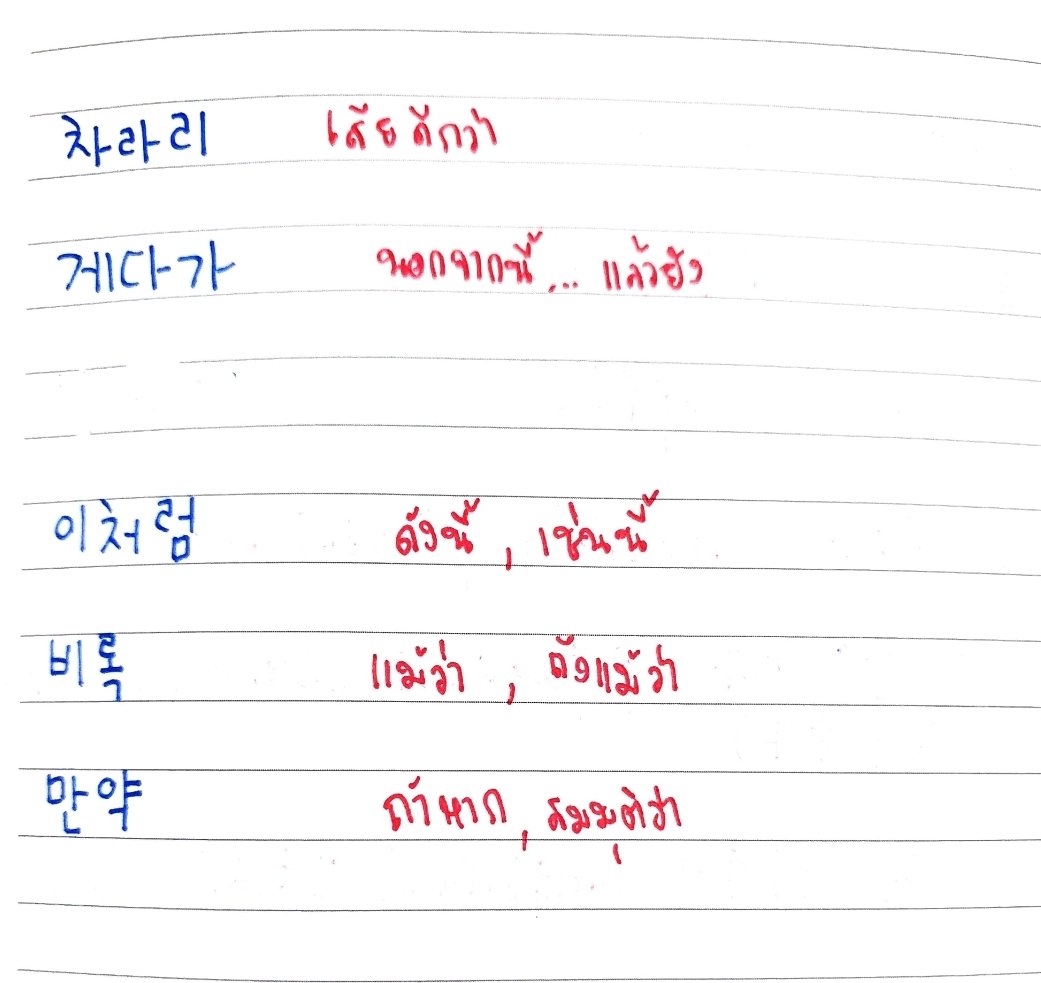 차라리 เสียดีกว่า
게다가 นอกจากนี้... แล้วยัง
이처럼 ดังนี้, เช่นนี้
비록 แม้ว่า, ถึงแม้ว่า
만약 ถ้าหาก, สมมุติว่า